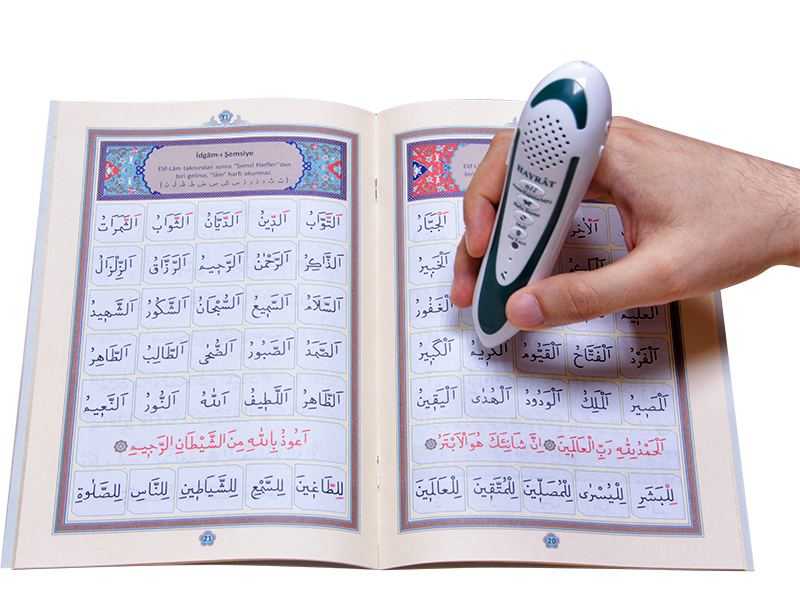 اَلْجَبَّارُ
اَلْخَبِيرُ
اَلْعَلِيمُ اَلْغَفُورُ
اَلْفَرْدُ اَلْفَتَّاحُ اَلْقَيُّومُ اَلْكَرِيمُ اَلْكَبِيرُ
اَلْمَصِيرُ اَلْمَلِكُ اَلْوَدُودُ اَلْهُدٰى اَلْيَقِينُ
اَلْحَمْدُ لِلّٰهِ رَبِّ الْعَالَمِينَ اِنَّ شَانِئَكَ هُوَ الْاَبْتَرُ
لِلْبَشَرِ لِلْيُسْرٰى لِلْمُصَلِّينَ لِلْمُتَّقِينَ لِلْعَالَمِينَ
20
HAYRÂT
21
İdgâm-ı Şemsiye
Elif-Lâm takısından sonra "Şemsî Harfler"den
biri gelirse, "lâm" harfi okunmaz.
( ت ث د ذ ر ز س ش ص ض ط ظ ل ن )
اَلتَّوَّابُ اَلدِّينُ اَلدَّيَّانُ اَلثَّوَابُ اَلثَّمَرَاتُ
اَلذَّاكِرُ اَلرَّحْمٰنُ اَلرَّحِيمُ اَلرَّزَّاقُ اَلزِّلْزَالُ
اَلسَّلَامُ اَلسَّمِيعُ اَلسُّبْحَانُ اَلشَّكُورُ اَلشَّهِيدُ
اَلصَّمَدُ اَلصَّبُورُ اَلضُّحٰى اَلطَّالِبُ اَلطَّاهِرُ
اَلظَّاهِرُ اَللَّطِيفُ اَللّٰهُ اَلنُّورُ اَلنَّعِيمُ
اَعُوذُ بِاللّٰهِ مِنَ الشَّيْطَانِ الرَّجِيمِ
لِلطَّاغِينَ لِلسَّبْعِ لِلشَّيَاطِينِ لِلنَّاسِ لِلصَّلٰوةِ
21